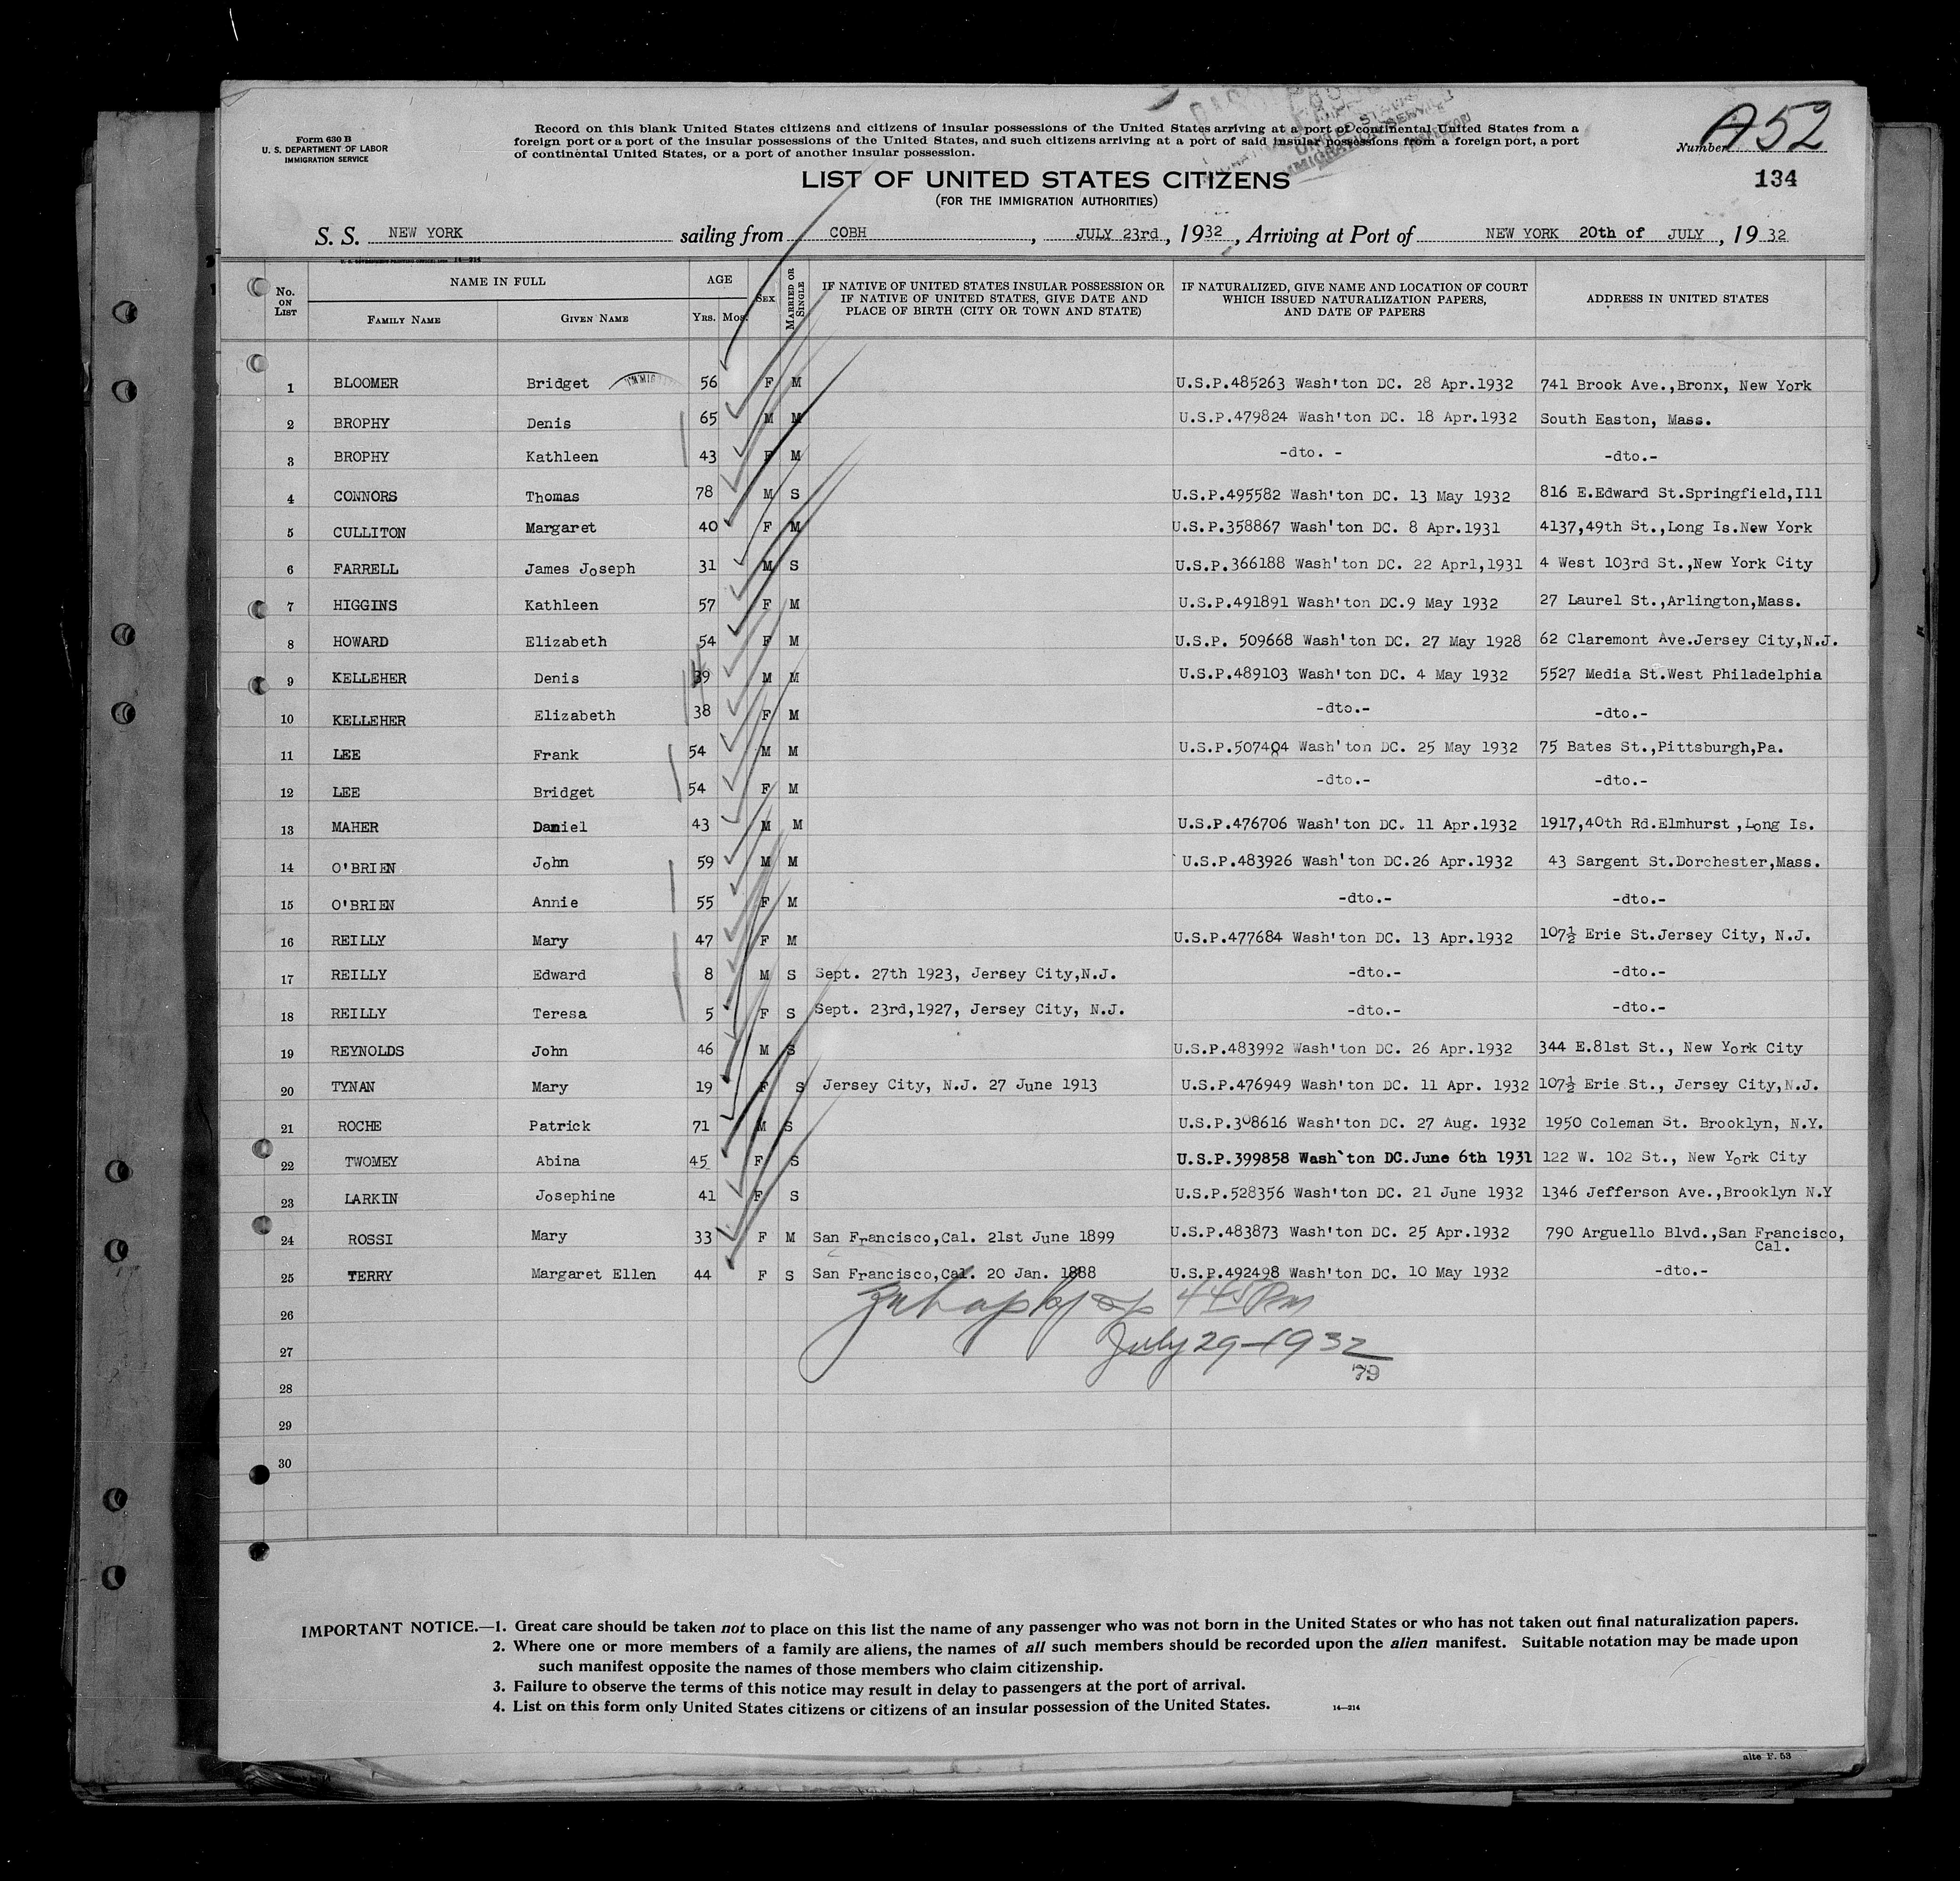 Form 630 B
U. S. DEPARTMENT OF LABOR
IMMIGRATION SERVICE
Record on this blank United States citizens and citizens of insular possessions of the United States arriving at a port of continental United States from a
foreign port or a port of the insular possessions of the United States, and such citizens arriving at a port of said insular possessions from a foreign port, a port
of continental United States, or a port of another insular possession.
Number A52
134
LIST OF UNITED STATES CITIZENS
(FOR THE IMMIGRATION AUTHORITIES)
S. S. NEW YORK sailing from COBH, JULY 23rd, 1932, Arriving at Port of NEW YORK 20th of JULY, 1932
No. ON LIST NAME IN FULL FAMILY NAME GIVEN NAME AGE YRS. MOS. SEX MARRIED OR SINGLE IF NATIVE OF UNITED STATES INSULAR POSSESSION OR IF NATIVE OF UNITED STATES, GIVE DATE AND PLACE OF BIRTH (CITY OR TOWN AND STATE) IF NATURALIZED, GIVE NAME AND LOCATION OF COURT WHICH ISSUED NATURALIZATION PAPERS, AND DATE OF PAPERS ADDRESS IN UNITED STATES
1 BLOOMER Bridget 56 F M U.S.P.485263 Wash'ton DC. 28 Apr.1932 741 Brook Ave.,Bronx, New York
2 BROPHY Denis 65 M M U.S.P.479824 Wash'ton DC. 18 Apr.1932 South Easton, Mass.
3 BROPHY Kathleen 43 F M -dto. - -dto.-
4 CONNORS Thomas 78 M S U.S.P.495582 Wash'ton DC. 13 May 1932 816 E.Edward St.Springfield,Ill
5 CULLITON Margaret 40 F M U.S.P.358867 Wash'ton DC. 8 Apr.1931 4137,49th St.,Long Is.New York
6 FARRELL James Joseph 31 M S U.S.P.366188 Wash'ton DC. 22 Aprl,1931 4 West 103rd St.,New York City
7 HIGGINS Kathleen 57 F M U.S.P.491891 Wash'ton DC.9 May 1932 27 Laurel St.,Arlington,Mass.
8 HOWARD Elizabeth 54 F M U.S.P. 509668 Wash'ton DC. 27 May 1928 62 Claremont Ave.Jersey City,N.J.
9 KELLEHER Denis 39 M M U.S.P.489103 Wash'ton DC. 4 May 1932 5527 Media St.West Philadelphia
10 KELLEHER Elizabeth 38 F M -dto.- -dto.-
11 LEE Frank 54 M M U.S.P.507404 Wash'ton DC. 25 May 1932 75 Bates St.,Pittsburgh,Pa.
12 LEE Bridget 54 F M -dto.- -dto.-
13 MAHER Daniel 43 M M U.S.P.476706 Wash'ton DC. 11 Apr.1932 1917,40th Rd.Elmhurst ,Long Is.
14 O'BRIEN John 59 M M U.S.P.483926 Wash'ton DC.26 Apr.1932 43 Sargent St.Dorchester,Mass.
15 O'BRIEN Annie 55 F M -dto.- -dto.-
16 REILLY Mary 47 F M U.S.P.477684 Wash'ton DC. 13 Apr.1932 107½ Erie St.Jersey City, N.J.
17 REILLY Edward 8 M S Sept. 27th 1923, Jersey City,N.J. -dto.- -dto.-
18 REILLY Teresa 5 F S Sept. 23rd,1927, Jersey City, N.J. -dto.- -dto.-
19 REYNOLDS John 46 M S U.S.P.483992 Wash'ton DC. 26 Apr.1932 344 E.81st St., New York City
20 TYNAN Mary 19 F S Jersey City, N.J. 27 June 1913 U.S.P.476949 Wash'ton DC. 11 Apr. 1932 107½ Erie St., Jersey City,N.J.
21 ROCHE Patrick 71 M S U.S.P.308616 Wash'ton DC. 27 Aug. 1932 1950 Coleman St. Brooklyn, N.Y.
22 TWOMEY Abina 45 F S U.S.P.399858 Wash'ton DC.June 6th 1931 122 W. 102 St., New York City
23 LARKIN Josephine 41 F S U.S.P.528356 Wash'ton DC. 21 June 1932 1346 Jefferson Ave.,Brooklyn N.Y
24 ROSSI Mary 33 F M San Francisco,Cal. 21st June 1899 U.S.P.483873 Wash'ton DC. 25 Apr.1932 790 Arguello Blvd.,San Francisco, Cal.
25 TERRY Margaret Ellen 44 F S San Francisco,Cal. 20 Jan. 1888 U.S.P.492498 Wash'ton DC. 10 May 1932 -dto.-
26 4 45 Pm
27 July 29-1932
79
28
29
30
IMPORTANT NOTICE.—1. Great care should be taken not to place on this list the name of any passenger who was not born in the United States or who has not taken out final naturalization papers.
2. Where one or more members of a family are aliens, the names of all such members should be recorded upon the alien manifest. Suitable notation may be made upon
such manifest opposite the names of those members who claim citizenship.
3. Failure to observe the terms of this notice may result in delay to passengers at the port of arrival.
4. List on this form only United States citizens or citizens of an insular possession of the United States.
14—214
alte F. 53